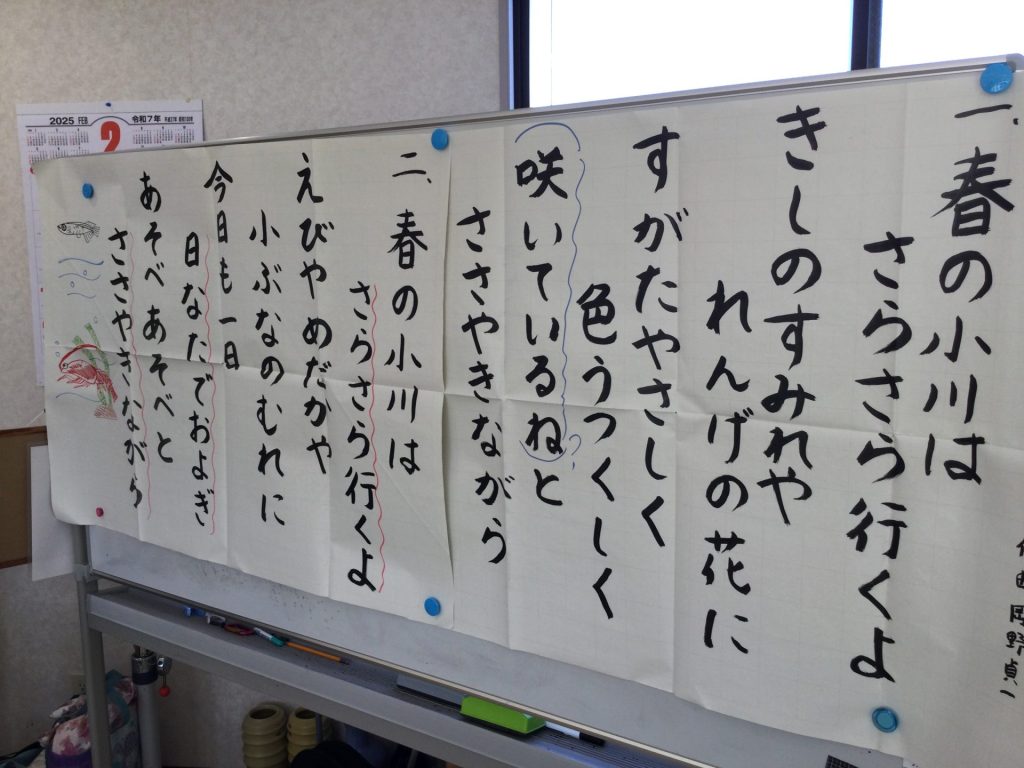 作曲 岡野貞一
一、春の小川は
さらさら行くよ
きしのすみれや
れんげの花に
すがたやさしく
色うつくしく
咲いているねと
?
ささやきながら
二、春の小川は
さらさら行くよ
えびやめだかや
小ぶなのむれに
今日も一日
日なたでおよぎ
あそべあそべと
ささやきながら
2025 FEB
2
令和7年